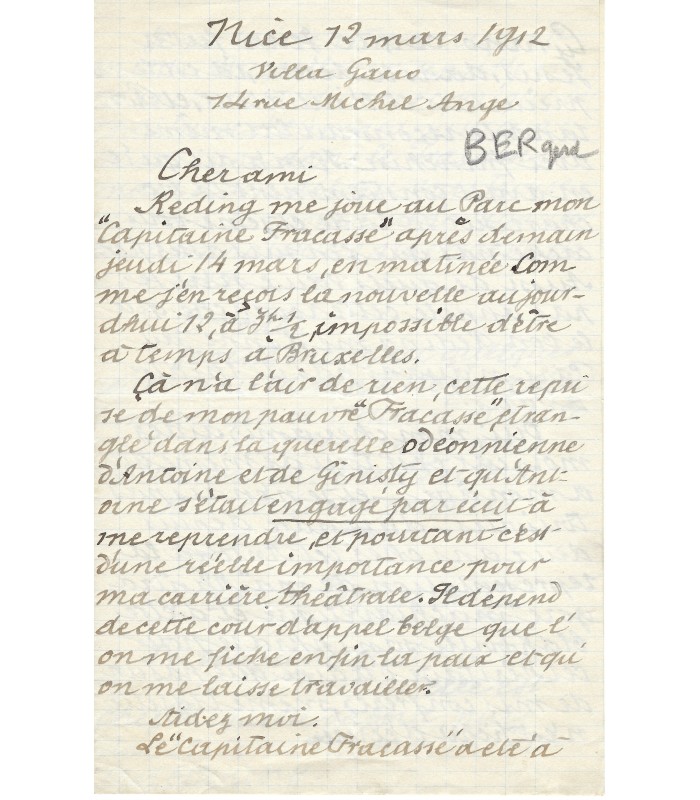 Nice 12 mars 1912
Villa
14 rue Michel Ange
BERgerd
Cher ami
Reding me joue au Parc mon
"Capitaine Fracasse" après demain
jeudi 14 mars, en matinée Com
me j'en reçois la nouvelle aujour-
d'hui 12, à 3h ½, impossible d'être
à temps à Bruxelles.
Çà n'a l'air de rien, cette repri
se de mon pauvre "Fracasse", étran-
glé dans la querelle odéonnienne
d'Antoine et de Ginisty et qu'Ant-
oine s'était engagé par écrit à
me reprendre, et pourtant c'est
d'une réelle importance pour
ma carrière théâtrale. Il dépend
de cette cour d'appel belge que l'
on me fiche enfin la paix et qu'
on me laisse travailler.
Aidez moi.
Le "Capitaine Fracasse" a été à